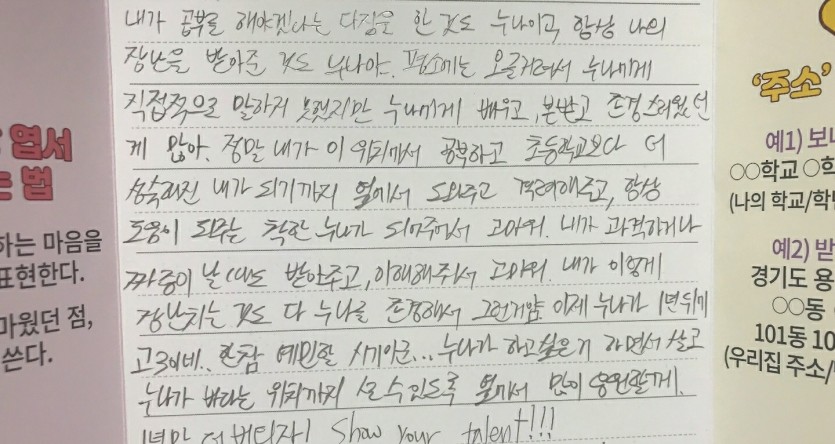 내가 공부를 해야겠다는 다짐을 한 것도 누나이고 항상 나의
장난을 받아준 것도 누나야. 평소에는 오글거려서 누나에게
직접적으로 말하지 못했지만 누나에게 배우고, 본받고 존경스러웠던
게 많아. 정말 내가 이 위치까지 공부하고 초등학교보다 더
성숙해진 내가 되기까지 옆에서 도와주고 격려해주고, 항상
도움이 되주는 착한 누나가 되어주어서 고마워. 내가 과격하거나
짜증이 날 때도 받아주고, 이해해주셔서 고마워. 내가 이렇게
장난치는 것도 다 누나를 존경해서 그런거야 이제 누나가 1년뒤에
고3이네.. 한참 예민할 시기이군... 누나가 하고싶은거 하면서 살고
누나가 바라는 위치까지 갈 수 있도록 옆에서 많이 응원할게.
1년만 더 버티자! Show your talent!!!
엽서
는 법
하는 마음을
표현한다.
마웠던 점,
쓴다.
'주소'
예1) 보
○○학교
(나의 학교/학
예2) 받
경기도 용
○○동
101동 10
(우리집 주소/